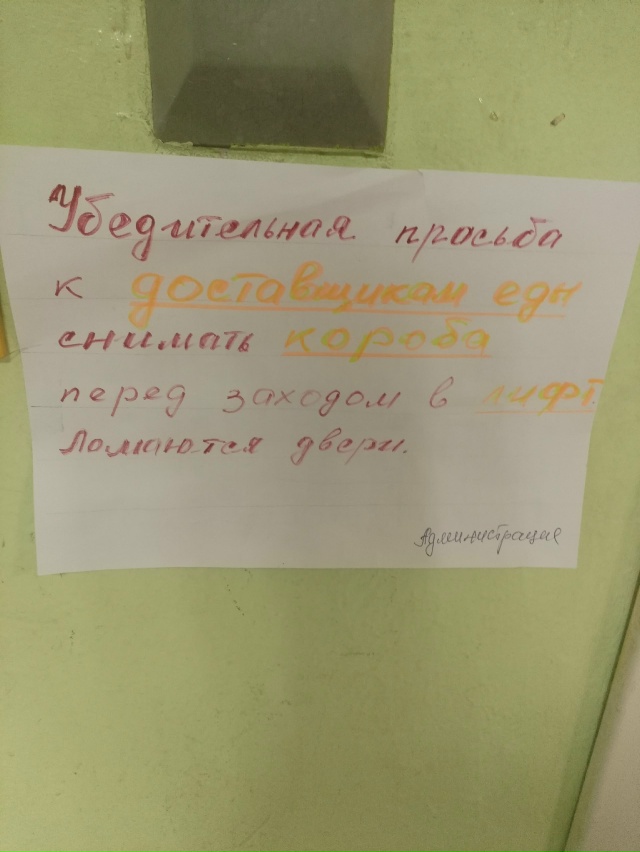 Убедительная просьба
к доставщикам еды
снимать короба
перед заходом в лифт.
Ломаются двери.
Администрация